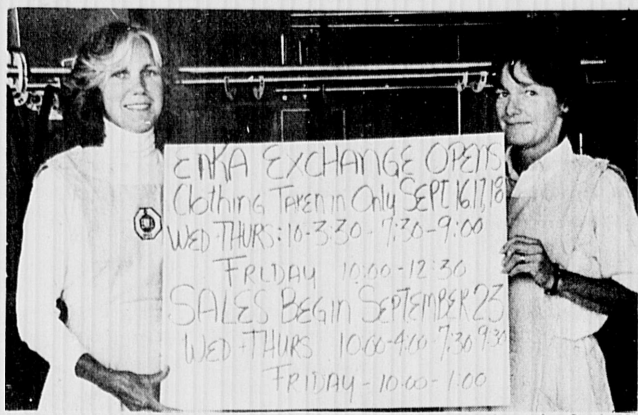 ENKA EXCHANGE OPENS
Clothing Taken in Only SEPT. 16,17,18
WED-THURS: 10-3:30 - 7:30-9:00
FRIDAY 10:00-12:30
SALES BEGIN SEPTEMBER 23
WED-THURS 10:00-4:00-7:30 9:30
FRIDAY-10:00-1:00